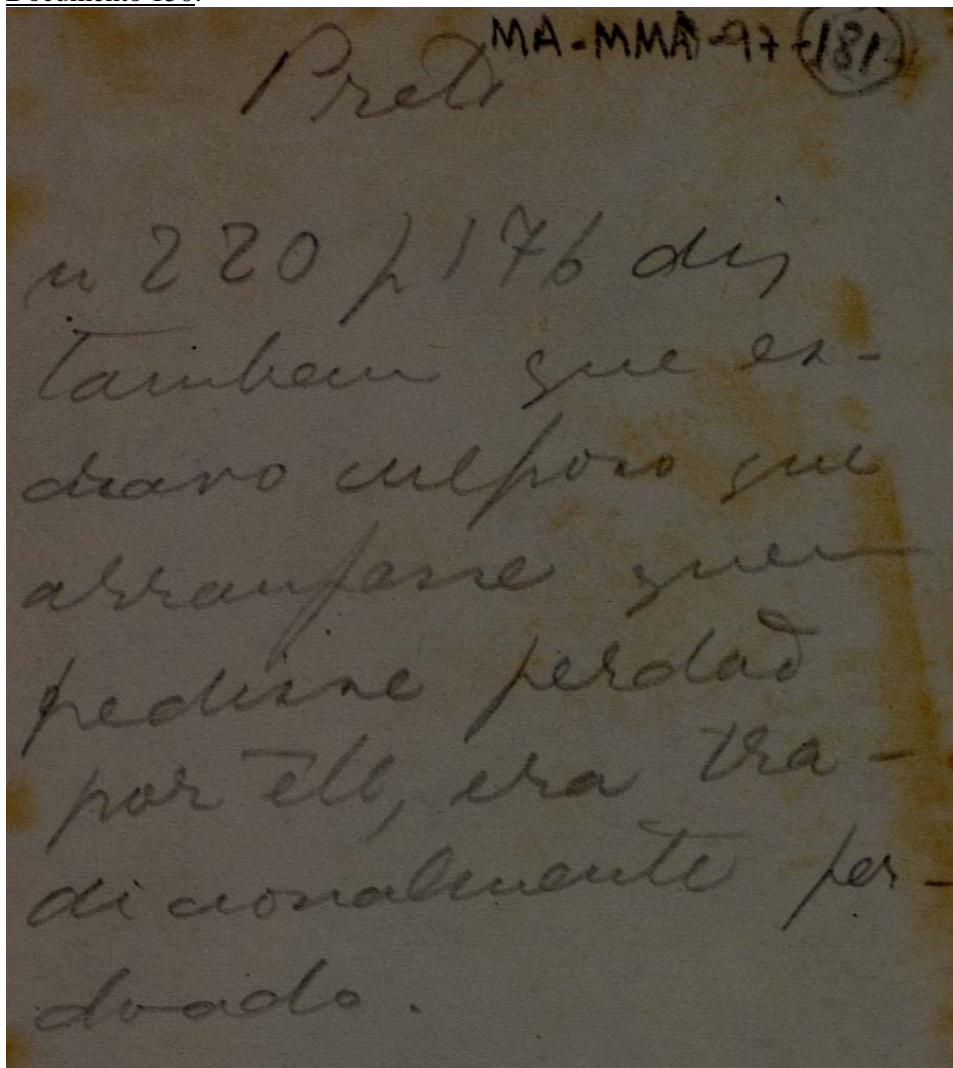 MA-MMA-97-181
Preto
n 220 p 176 diz
tambem que es-
cravo culposo que
arranjasse quem
pedisse perdaõ
por elle, era tra-
dicionalmente per-
doado.